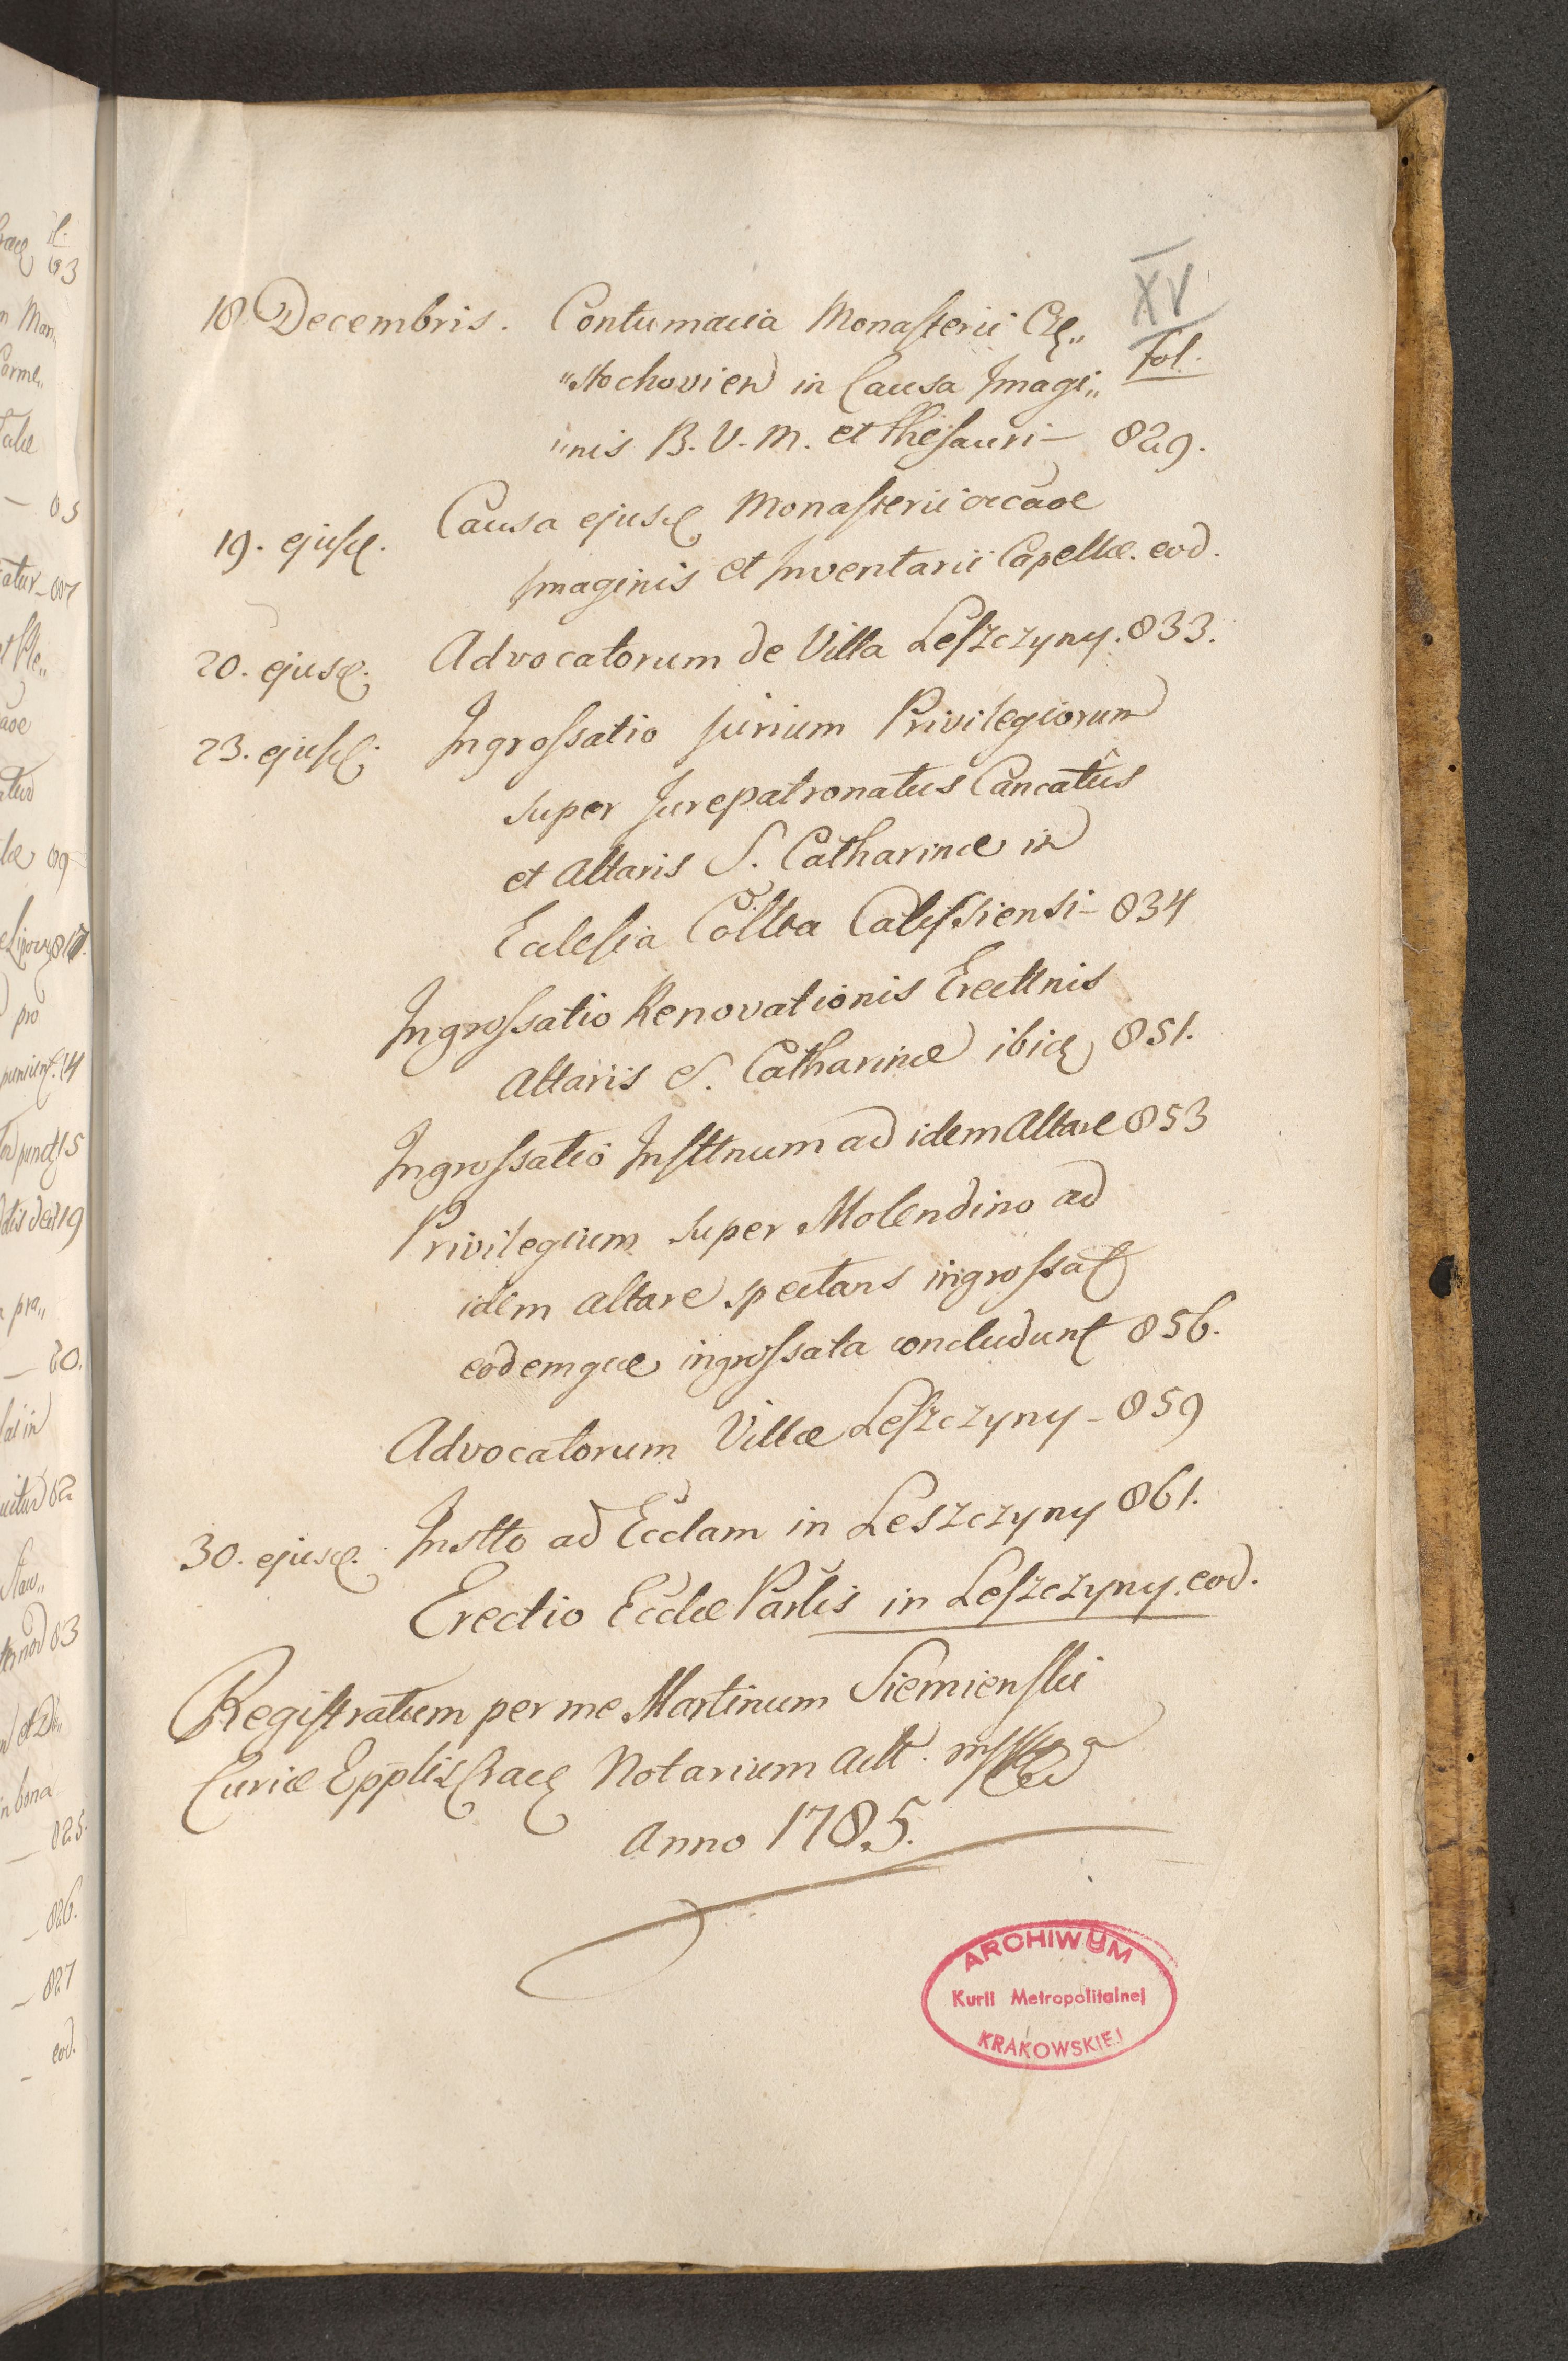 XV
Fol.
18 Decembris. Contumacia Monasterii Czę„
„stochovien in Causa Imagi„
„nis B. V. M. et Thesauri – 829.
19. ejusd. Causa ejusd Monasterii occaoe
Imaginis et Inventarii Capellæ. eod.
20. ejusd. Advocatorum de Villa Leszczyny. 833.
23. ejusd. Ingrossatio Jurium Privilegiorum
super Jurepatronatus Cancatûs
et Altaris S. Catharinæ in
Ecclesia Collta Calissiensi – 834
Ingrossatio Renovationis Erecttnis
Altaris S. Catharinæ ibid 851.
Ingrossatio Insttnum ad idem Altare 853
Privilegium super Molendino ad
idem altare spectans ingrossat
eodemque ingrossata concludunt 856.
Advocatorum Villæ Leszczyny – 859
30. ejusd. Instto ad Ecclam in Leszczyny 861.
Erectio Ecclæ Parlis in Leszczyny. eod.
Registratum per me Martinum Siemienski
Curiæ Epplis Crac Notarium Actt. mppa
Anno 1785.
ARCHIWUM
Kurii Metropolitalnej
KRAKOWSKIEJ